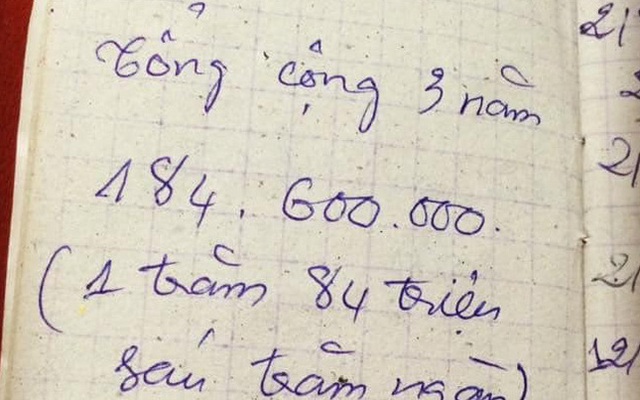 Tổng cộng 3 năm
184.600.000.
(1 trăm 84 triệu
sáu trăm ngàn)
21
2
21
21
121